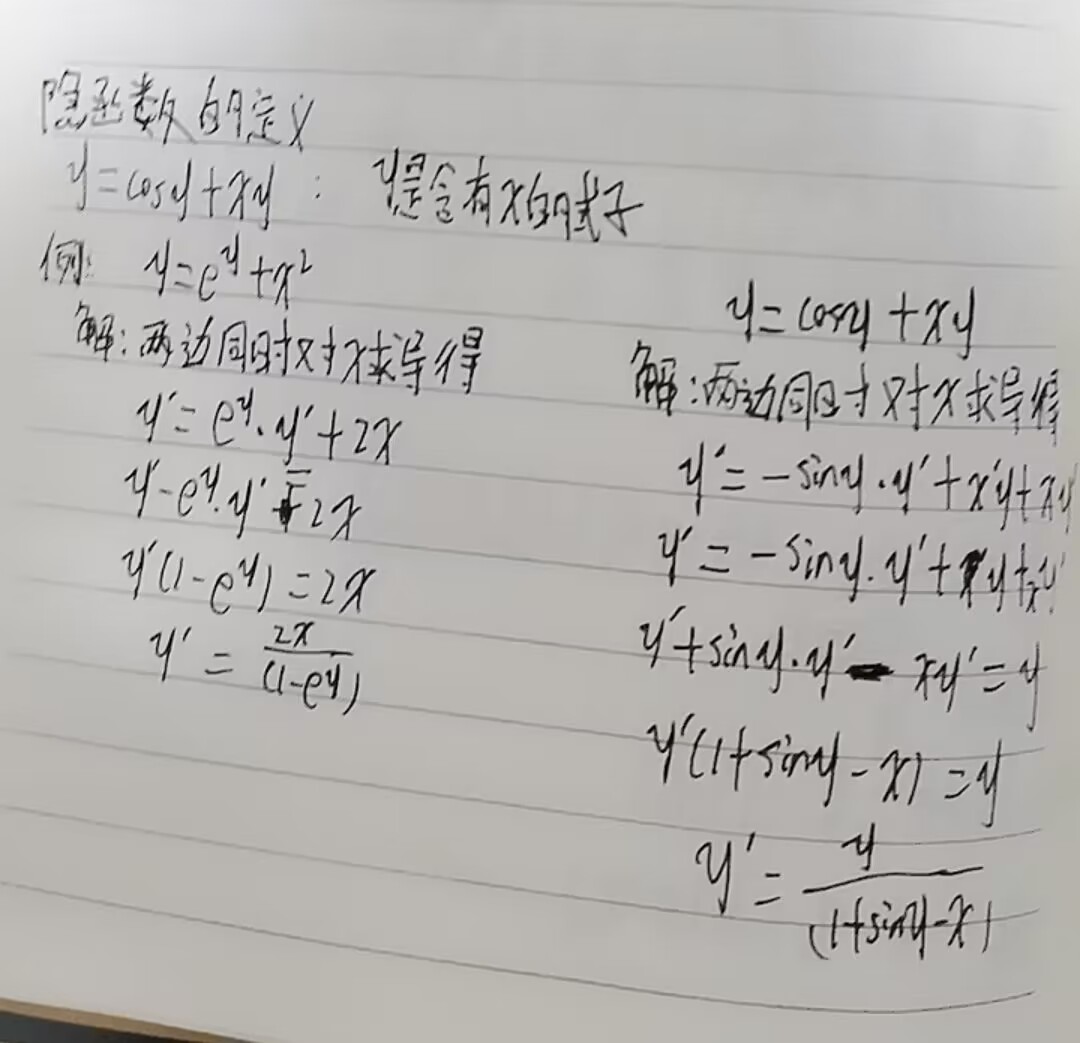 隐函数的定义
y=cosy+xy : y是含有x的式子
例: y=e^y+x²
解:两边同时对x求导得
y′=e^y·y′+2x
y′-e^y·y′=2x
y′(1-e^y)=2x
y′=2x/(1-e^y)
y=cosy+xy
解:两边同时对x求导得
y′=-siny·y′+x′y+xy′
y′=-siny·y′+y+xy′
y′+siny·y′-xy′=y
y′(1+siny-x)=y
y′=y/(1+siny-x)